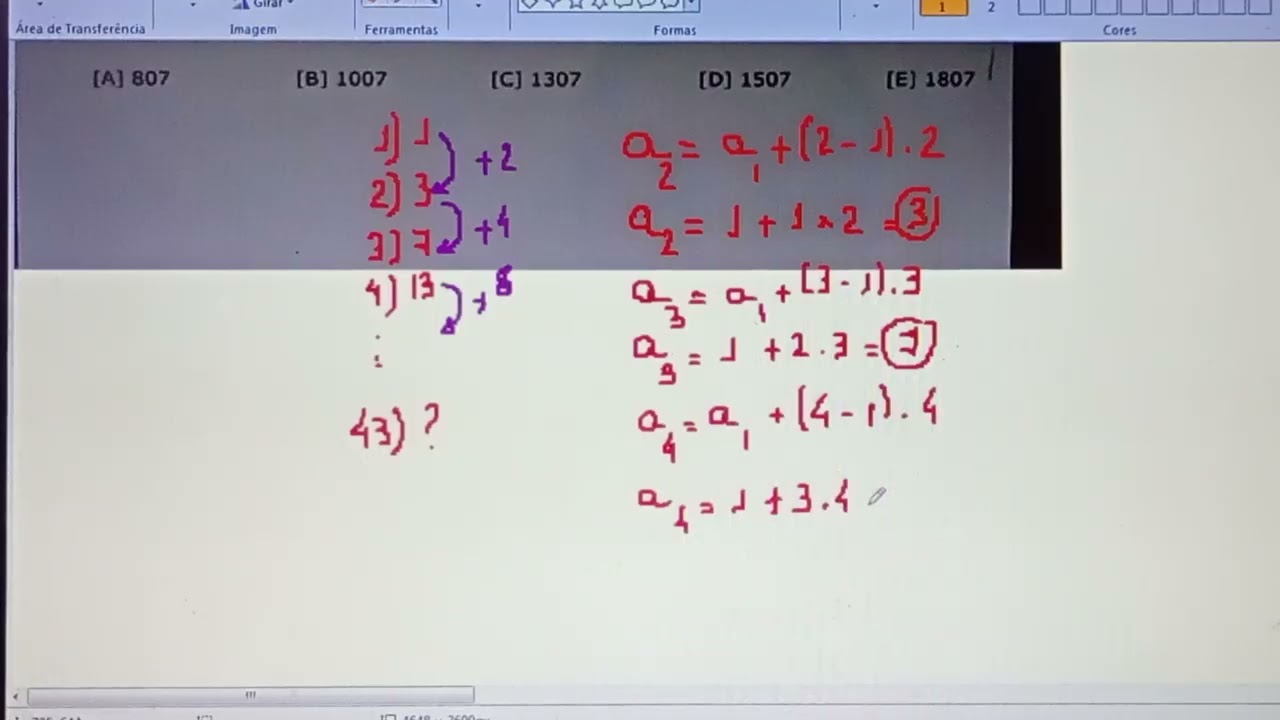 Girar
Área de Transferência Imagem Ferramentas Formas 1 2 Cores
[A] 807 [B] 1007 [C] 1307 [D] 1507 [E] 1807
1) 1
+2
2) 3
+4
3) 7
4) 13
+8
:
43) ?
a2 = a1 + (2 - 1) . 2
a2 = 1 + 1 x 2 = 3
a3 = a1 + (3 - 1) . 3
a3 = 1 + 2 . 3 = 7
a4 = a1 + (4 - 1) . 4
a4 = 1 + 3 . 4